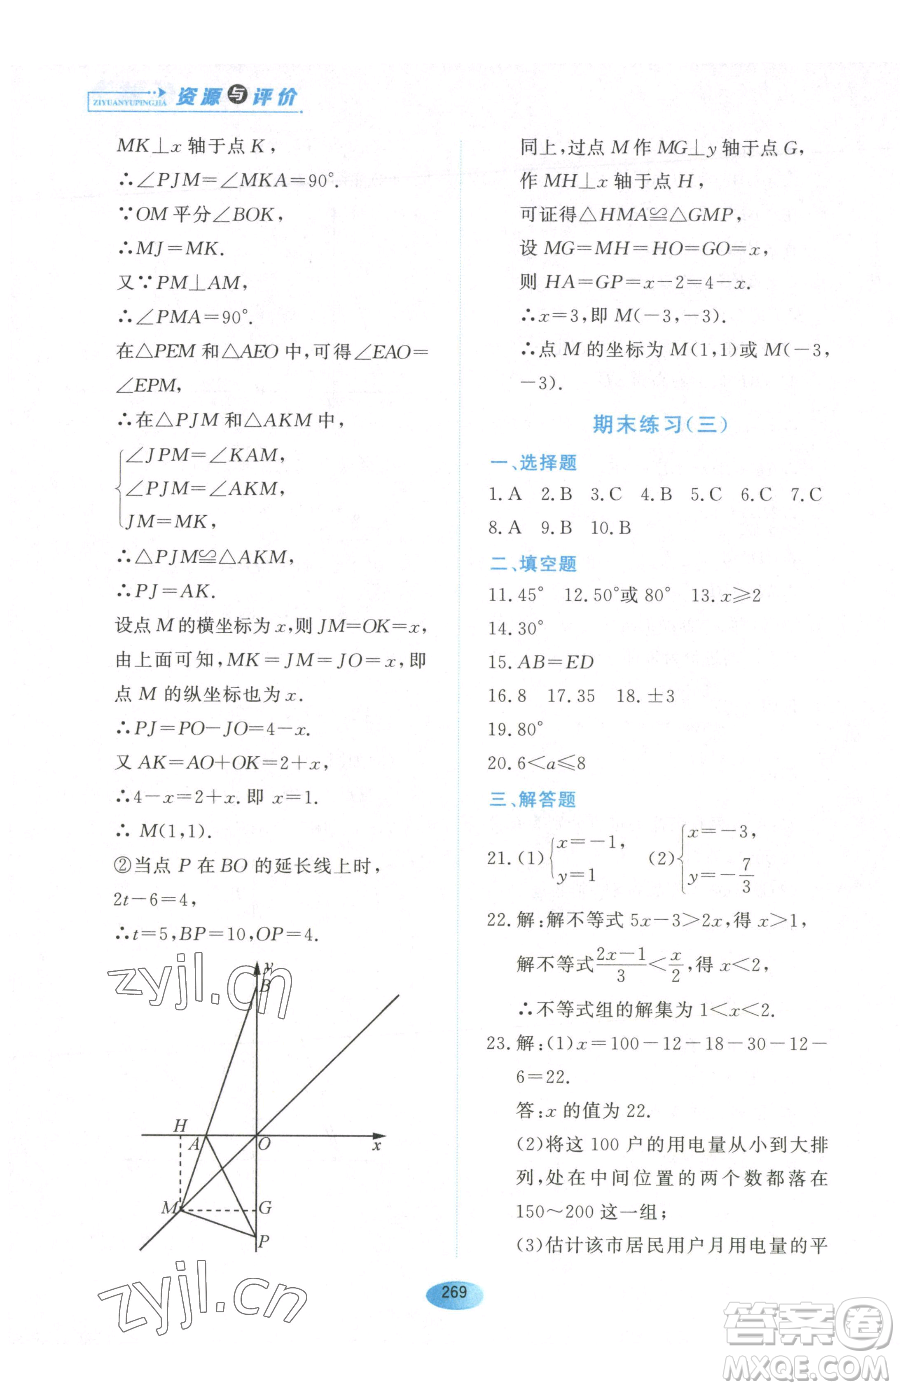 资源与评价
ZIYUANYUPINGJIA
MK⊥x 轴于点 K,
∴∠PJM=∠MKA=90°.
∵OM 平分∠BOK,
∴MJ=MK.
又∵PM⊥AM,
∴∠PMA=90°.
在△PEM 和△AEO 中,可得∠EAO=
∠EPM,
∴在△PJM 和△AKM 中,
∠JPM=∠KAM,
∠PJM=∠AKM,
JM=MK,
∴△PJM≌△AKM,
∴PJ=AK.
设点 M 的横坐标为 x,则 JM=OK=x,
由上面可知,MK=JM=JO=x,即
点 M 的纵坐标也为 x.
∴PJ=PO-JO=4-x.
又 AK=AO+OK=2+x,
∴4-x=2+x.即 x=1.
∴ M(1,1).
②当点 P 在 BO 的延长线上时,
2t-6=4,
∴t=5,BP=10,OP=4.
y
B
H
A
O
x
M
G
P
zyjl.cn
zyjl.cn
同上,过点 M 作 MG⊥y 轴于点 G,
作 MH⊥x 轴于点 H,
可证得△HMA≌△GMP,
设 MG=MH=HO=GO=x,
则 HA=GP=x-2=4-x.
∴x=3,即 M(-3,-3).
∴点 M 的坐标为 M(1,1)或 M(-3,
-3).
期末练习(三)
一、选择题
1.A 2.B 3.C 4.B 5.C 6.C 7.C
8.A 9.B 10.B
二、填空题
11.45° 12.50°或 80° 13.x≥2
14.30°
15.AB=ED
16.8 17.35 18.±3
19.80°
20.6<a≤8
三、解答题
21.(1){x=-1, y=1 (2){x=-3, y=-7/3
22.解:解不等式 5x-3>2x,得 x>1,
解不等式 (2x-1)/3<x/2,得 x<2,
∴不等式组的解集为 1<x<2.
23.解:(1)x=100-12-18-30-12-
6=22.
答:x 的值为 22.
(2)将这 100 户的用电量从小到大排
列,处在中间位置的两个数都落在
150~200 这一组;
(3)估计该市居民用户月用电量的平
269
答案卷
MXQE.COM